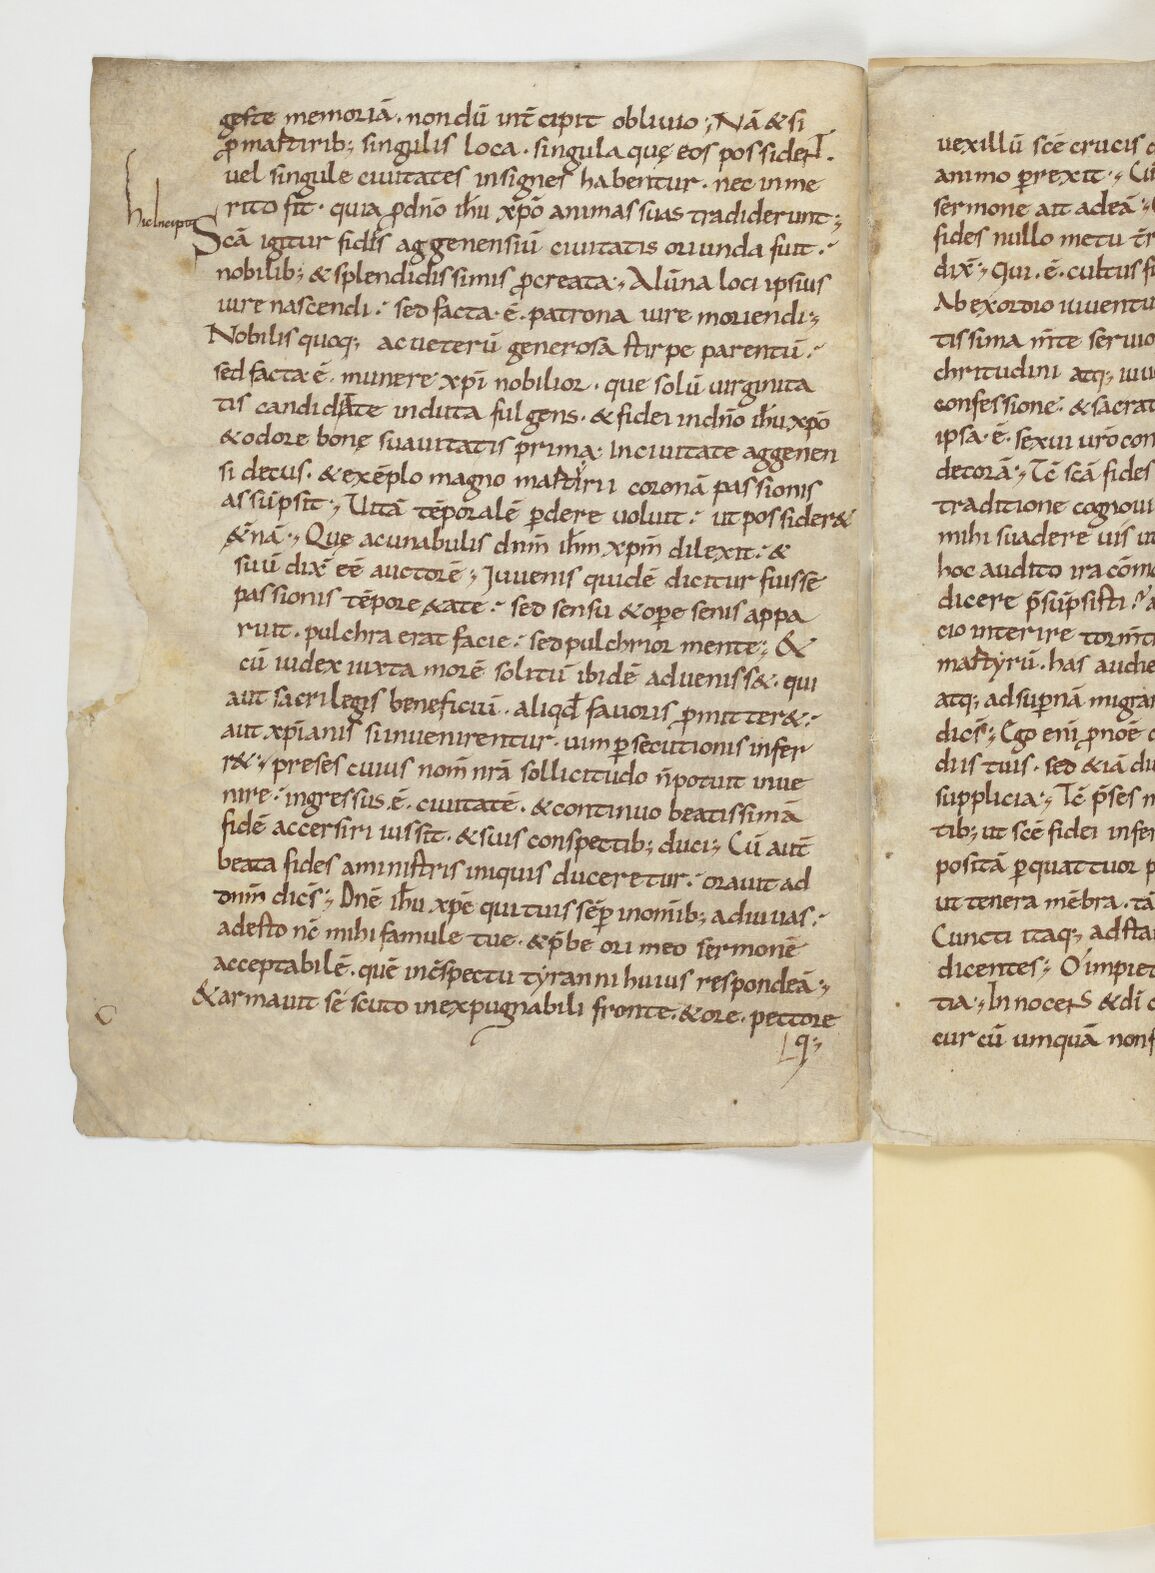 geste memoriā. non dū int̄ cipit obliuio; Nā & si
p̄ martirib; singulis loca. singula quę eos possident.
uel singule ciuitates insignes habentur. nec inme
rito fit̄. quia p̄ dn̄o ih̄u xp̄o animas suas tradiderunt;
hic Incipit
Scā igitur fidis aggenensiū ciuitatis oriunda fuit.
nobilib; & splendidissimis p̄creata; Alūna loci ipsius
iure nascendi. sed facta. ē. patrona iure moriendi;
Nobilis quoq; ac ueterū generosa stirpe parentū.
sed facta ē. munere xp̄i nobilior. que solū uirginita
tis candidate induta fulgens. & fidei indn̄o ih̄u xp̄o
& odore bonę suauitatis prima. In ciuitate aggenen
si decus. & exēplo magno martirii coronā passionis
assūpsit; Uitā tēporalē p̄dere uoluit. ut possider&
&̄nā; Quę acunabulis dn̄m ih̄m xp̄m dilexit. &
suū dix̄ eē auctorē; Iuuenis quidē dicitur fuisse
passionis tēpore &ate. sed sensu & op̄e senis appa
ruit. pulchra erat facie. sed pulchrior mente; &
cū iudex iuxta morē solitū ibidē aduenisse&. qui
aut sacrilegis beneficiū. aliqd̄ fauoris p̄mitter&.
aut xp̄ianis si inuenirentur. uim p̄secutionis infer
r&; preses cuius nom̄ nr̄ā sollicitudo n̄ potuit inue
nire. ingressus. ē. ciuitatē. & continuo beatissimā
fidē accersiri iussit. & suis conspectib; duci; Cū aut̄
beata fides aministris iniquis duceretur. orauit ad
dn̄m dicēs; Dn̄e ih̄u xp̄e qui tuis sēp̄ inom̄ib; adiuuas.
adesto nc̄ mihi famule tue. & p̄be ori meo sermonē
acceptabilē. quē incs̄pectu tyranni huius respondeā;
& armauit sē scuto inexpugnabili fronte. & ore. pectore
q;
uexillū scē crucis
animo perrexit;
sermone ait adeā;
fides nullo metu
dix̄; Qui. ē. cultus
Ab exordio
tissima m̄te
chritudini atq;
confessione. &
ipsa. ē. sexui ur̄o
decorā; Tc̄ scā fides
traditione
mihi suadere uis
hoc audito ira
dicere p̄sūpsisti.
cio interire
martyrū. has
atq; adsup̄nā
dicēs; Ego eni
diis tuis. sed &iā
supplicia; Tc̄ p̄ses
tib; ut scē fidei
positā p̄ quattuor
ut tenera mēbra.
Cuncti itaq;
dicentes; O
tia; Innocens & di
cur cū umquā